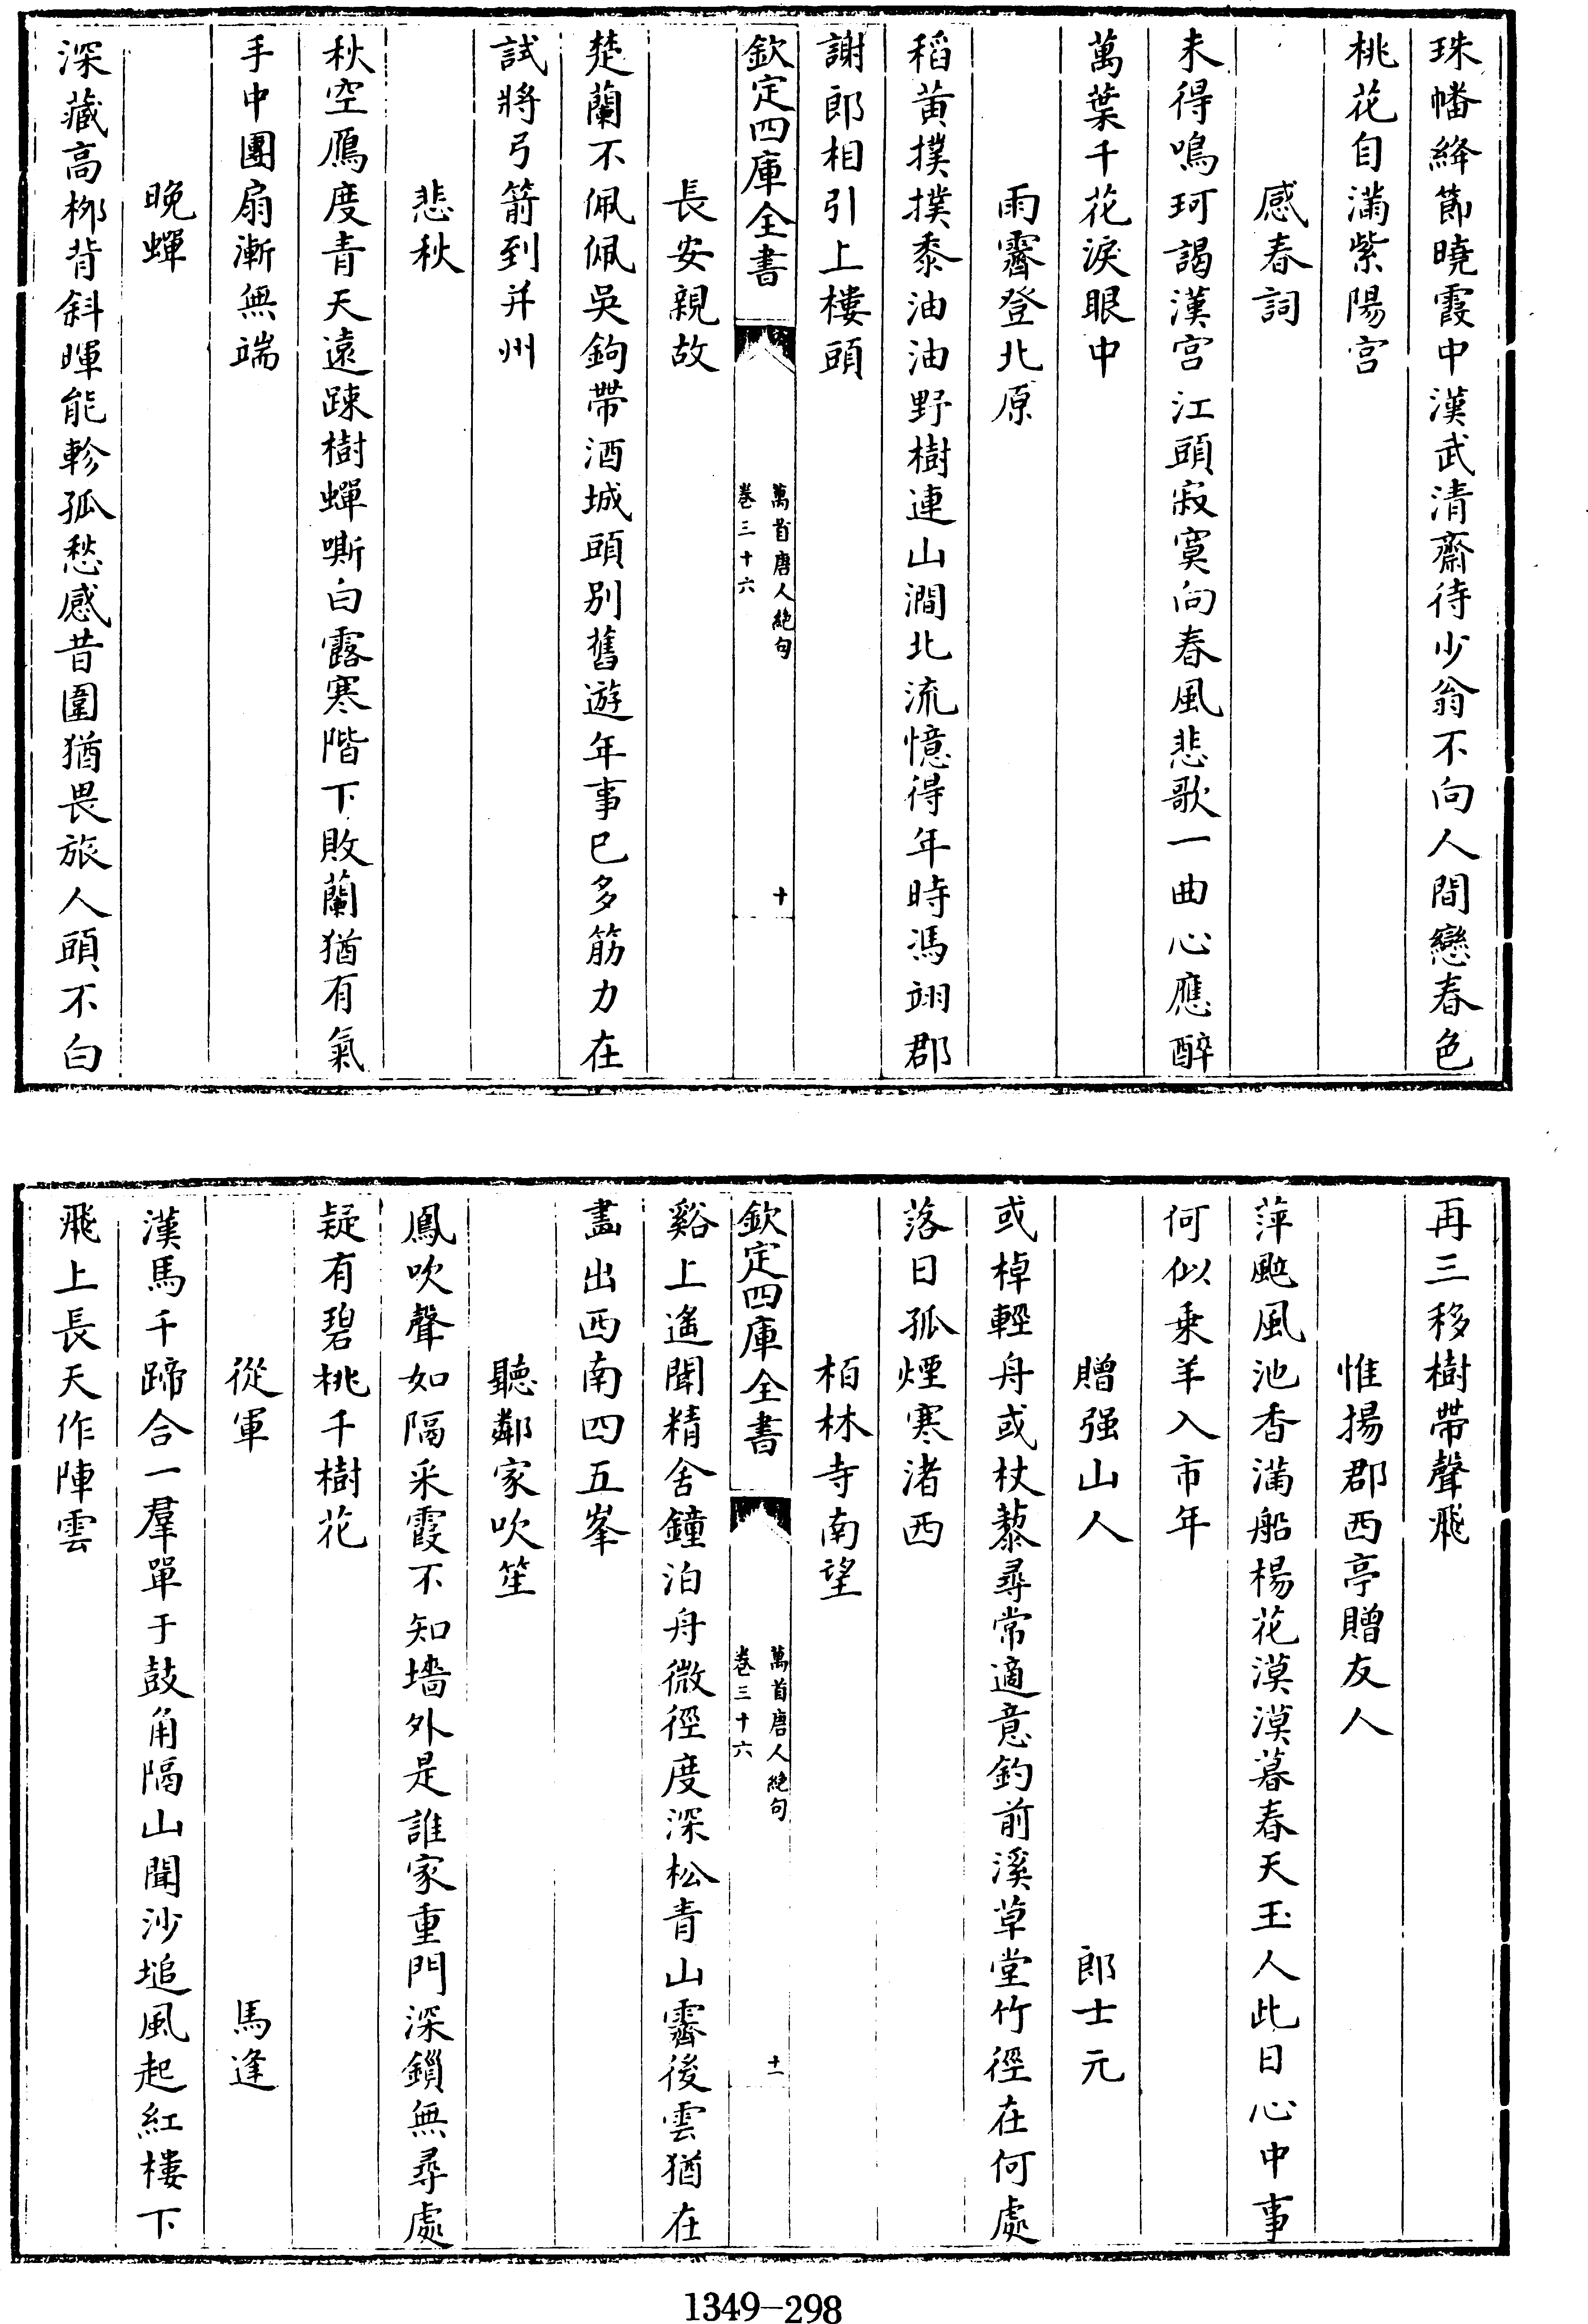 珠幡絳節曉霞中漢武清齋待少翁不向人間戀春色
桃花自滿紫陽宮
感春詞
未得鳴珂謁漢宮江頭寂寞向春風悲歌一曲心應醉
萬葉千花淚眼中
雨霽登北原
稻黃撲撲黍油油野樹連山澗北流憶得年時馮翊郡
謝郎相引上樓頭
欽定四庫全書
萬首唐人絶句
卷三十六
十
長安親故
楚蘭不佩佩吳鉤帶酒城頭别舊遊年事已多筋力在
試將弓箭到并州
悲秋
秋空鴈度青天遠踈樹蟬嘶白露寒階下敗蘭猶有氣
手中團扇漸無端
晚蟬
深藏高栁背斜暉能軫孤愁感昔圍猶畏旅人頭不白
再三移樹帶聲飛
惟揚郡西亭贈友人
萍颭風池香滿船楊花漠漠暮春天玉人此日心中事
何似乗羊入市年
贈强山人
郎士元
或棹輕舟或杖藜尋常適意釣前溪草堂竹徑在何處
落日孤煙寒渚西
栢林寺南望
欽定四庫全書
萬首唐人絶句
卷三十六
十一
谿上遙聞精舍鐘泊舟微徑度深松青山霽後雲猶在
畫出西南四五峯
聽鄰家吹笙
鳳吹聲如隔采霞不知墻外是誰家重門深鎻無尋處
疑有碧桃千樹花
從軍
馬逢
漢馬千蹄合一羣單于鼓角隔山聞沙塠風起紅樓下
飛上長天作陣雲
1349—298